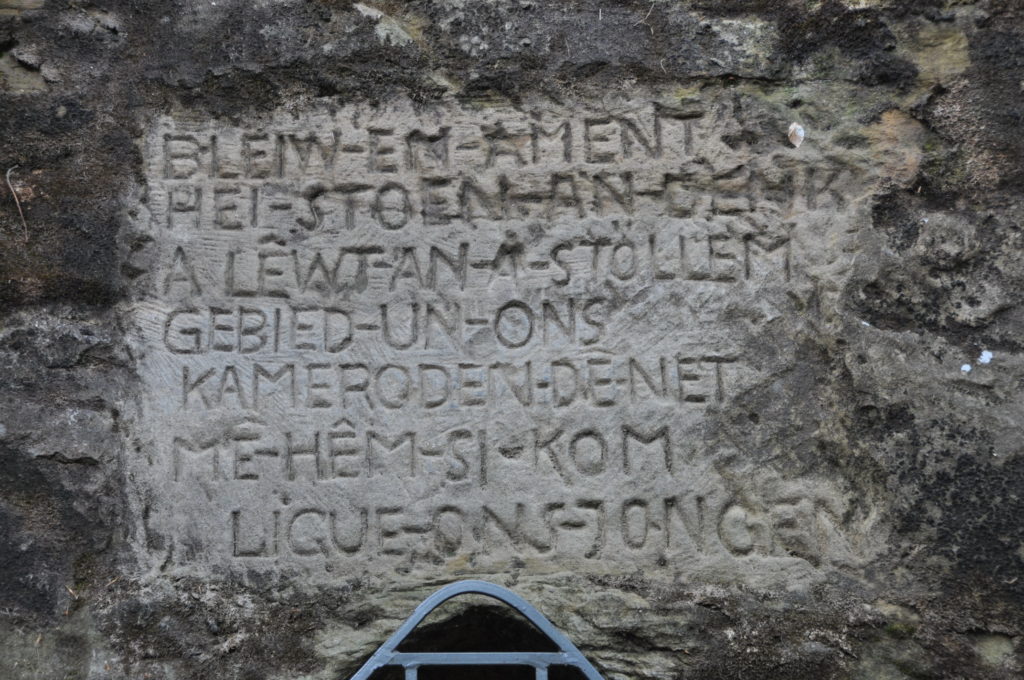 BLEIW-EN-AMENT
HEI-STOEN-AN-DENK
A LÊWT-AN-A-STÖLLEM
GEBIED-UN-ONS
KAMERODEN-DÊ-NET
MÊ-HÊM-SI-KOM
LIGUE-ONS-JONGEN